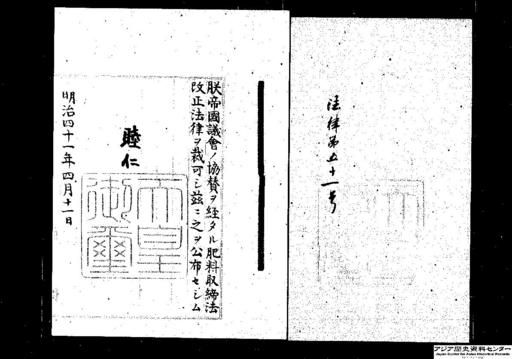 法律第五十一号
朕帝國議會ノ協賛ヲ経タル肥料取締法
改正法律ヲ裁可シ玆ニ之ヲ公布セシム
睦仁
天皇
御璽
明治四十一年四月十一日
アジア歴史資料センター
Japan Center for Asian Historical Records